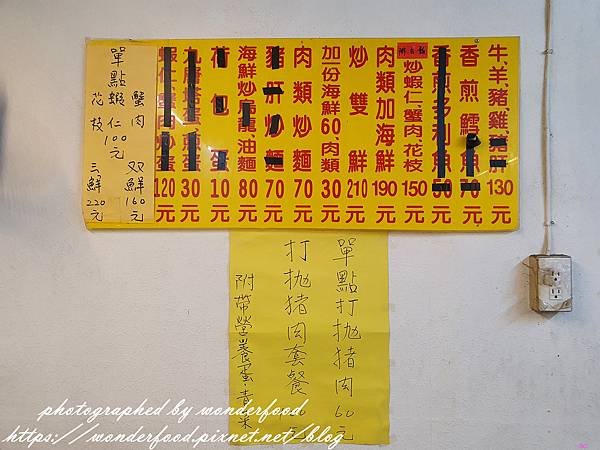 牛、羊、豬、雞、豬肝 130元
香煎鱈魚 70元
香煎多利魚 50元
炒蝦仁蟹肉花枝 150元
肉類加海鮮 190元
炒雙鮮 210元
加份海鮮60肉類30元
肉類炒麵 70元
豬肝炒麵 70元
海鮮炒烏龍、油麵 80元
荷包蛋 10元
九層塔蛋、煎蛋 30元
蝦仁、蟹肉炒蛋 120元
單點
蟹肉
蝦仁 100元
花枝
双鮮 160元
三鮮 220元
單點打拋猪肉 60元
打拋猪肉套餐
附帶營養蛋、青菜
photographed by wonderfood
https://wonderfood.pixnet.net/blog